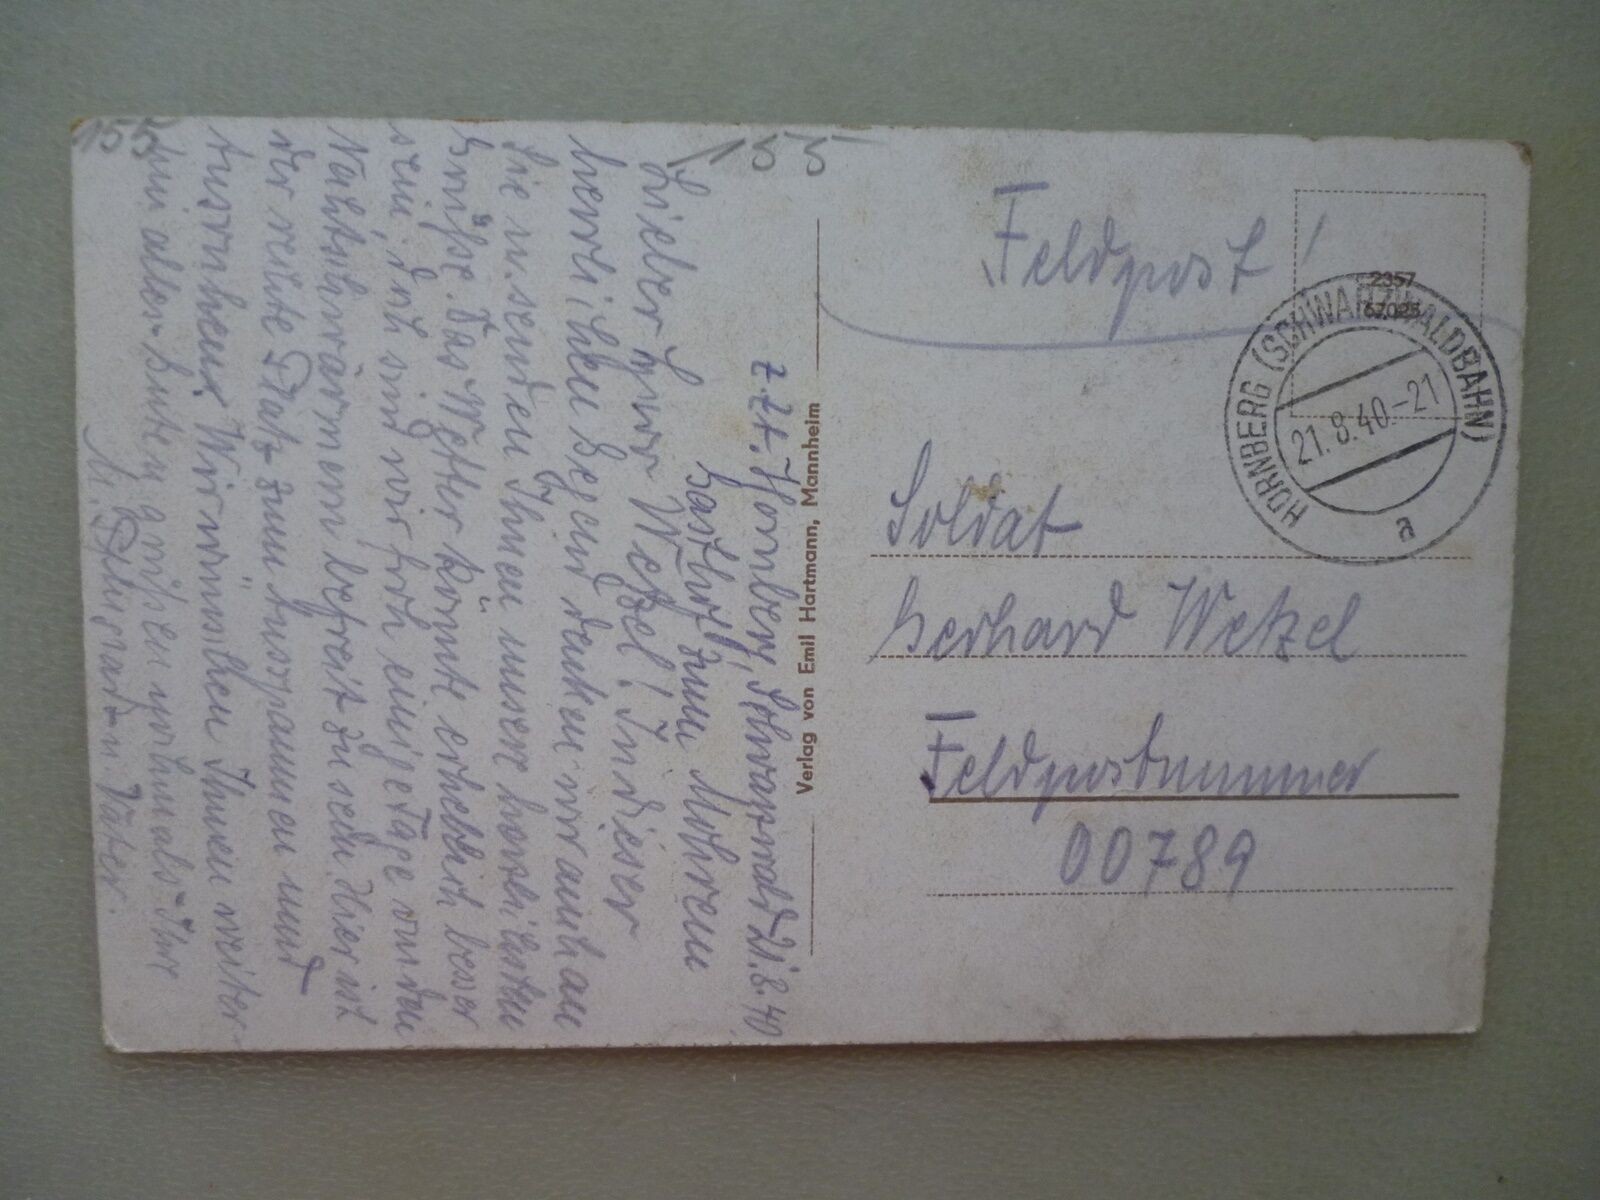 155
155
z. Zt. Hornberg, Schwarzwald 21.8.40
Gasthof zum Mohren
Lieber Herr Wetzel! In dieser
herrlichen Gegend denken wir auch an
Sie u. senden Ihnen unsere herzlichsten
Grüße. Das Wetter könnte erheblich besser
sein, doch sind wir froh einige Tage von den
Nachtschwärmern befreit zu sein. Hier ist
der rechte Platz zum Ausspannen und
Ausruhen. Wir wünschen Ihnen weiter-
hin alles Gute u. grüßen nochmals Ihre
u. Vater.
Verlag von Emil Hartmann, Mannheim
Feldpost!
2357
67023
HORNBERG (SCHWARZWALDBAHN)
21.8.40.-21
a
Soldat
Gerhard Wetzel
Feldpostnummer
00789